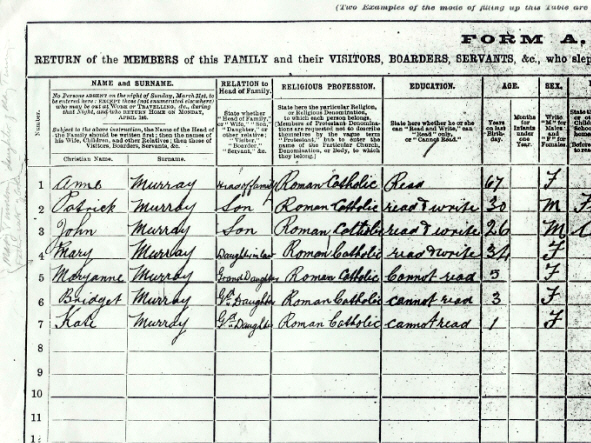 (Two Examples of the mode of filling up this Table are
FORM A.
RETURN of the MEMBERS of this FAMILY and their VISITORS, BOARDERS, SERVANTS, &c., who slep
Number.
NAME and SURNAME.
No Persons ABSENT on the night of Sunday, March 31st, to
be entered here; EXCEPT those (not enumerated elsewhere)
who may be out at WORK or TRAVELLING, &c., during
that Night, and who RETURN HOME ON MONDAY,
APRIL 1ST.
Subject to the above instruction, the Name of the Head of
the Family should be written first; then the names of
his Wife, Children, and other Relatives; then those of
Visitors, Boarders, Servants, &c.
Christian Name. Surname.
RELATION to
Head of Family.
State whether
"Head of Family,"
or "Wife," "Son,"
"Daughter," or
other relative;
"Visitor,"
"Boarder,"
"Servant," &c.
RELIGIOUS PROFESSION.
State here the particular Religion,
or Religious Denomination,
to which each person belongs.
(Members of Protestant Denomina-
tions are requested not to describe
themselves by the vague term
"Protestant," but to enter the
name of the Particular Church,
Denomination, or Body, to which
they belong.)
EDUCATION.
State here whether he or she
can "Read and Write," can
"Read" only,
or "Cannot Read."
AGE.
Years
on last
Birth-
day.
Months
for
Infants
under
one
Year.
SEX.
Write
"M" for
Males
and
"F" for
Females.
1 Anne Murray Head of family Roman Catholic Read 67 F
2 Patrick Murray Son Roman Catholic read & write 30 M
3 John Murray Son Roman Catholic read & write 26 M
4 Mary Murray Daughter in law Roman Catholic read & write 34 F
5 Maryanne Murray Grand Daughter Roman Catholic Cannot read 5 F
6 Bridget Murray Gd Daughter Roman Catholic cannot read 3 F
7 Kate Murray Gd Daughter Roman Catholic cannot read 1 F
8
9
10
11